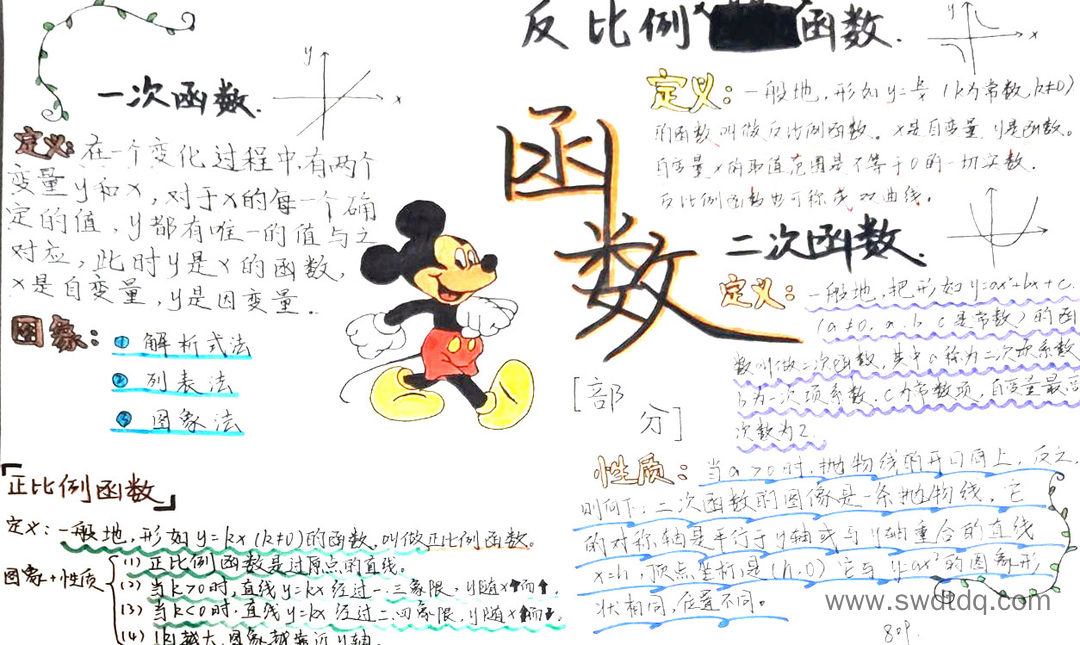 一次函数.
y
x
定义:在一个变化过程中,有两个
变量y和x,对于x的每一个确
定的值,y都有唯一的值与之
对应,此时y是x的函数,
x是自变量,y是因变量.
图象:
① 解析式法
② 列表法
③ 图象法
「正比例函数」
定义:一般地,形如y=kx(k≠0)的函数,叫做正比例函数。
图象+性质
(1)正比例函数是过原点的直线。
(2)当k>0时,直线y=kx经过一.三象限,y随x↑而↑.
(3)当k<0时.直线y=kx经过二.四象限,y随x↑而↓.
(4)|k|越大,图象越靠近y轴.
函
数
[部
分]
反比例
函数.
y
x
定义:一般地,形如y=k/x(k为常数,k≠0)
的函数叫做反比例函数。x是自变量 y是函数。
自变量x的取值范围是不等于0的一切实数.
反比例函数也可称或双曲线。
二次函数.
定义:一般地,把形如y=ax²+bx+c.
(a≠0.a.b.c是常数)的函
数叫做二次函数,其中a称为二次项系数
b为一次项系数.c为常数项,自变量最高
次数为2.
性质:当a>0时.抛物线的开口向上,反之,
则向下;二次函数的图像是一条抛物线,它
的对称轴是平行于y轴或与y轴重合的直线
x=h,顶点坐标是(h.0)它与y=ax²的图象形
状相同,位置不同。
www.swdtdq.com
809.